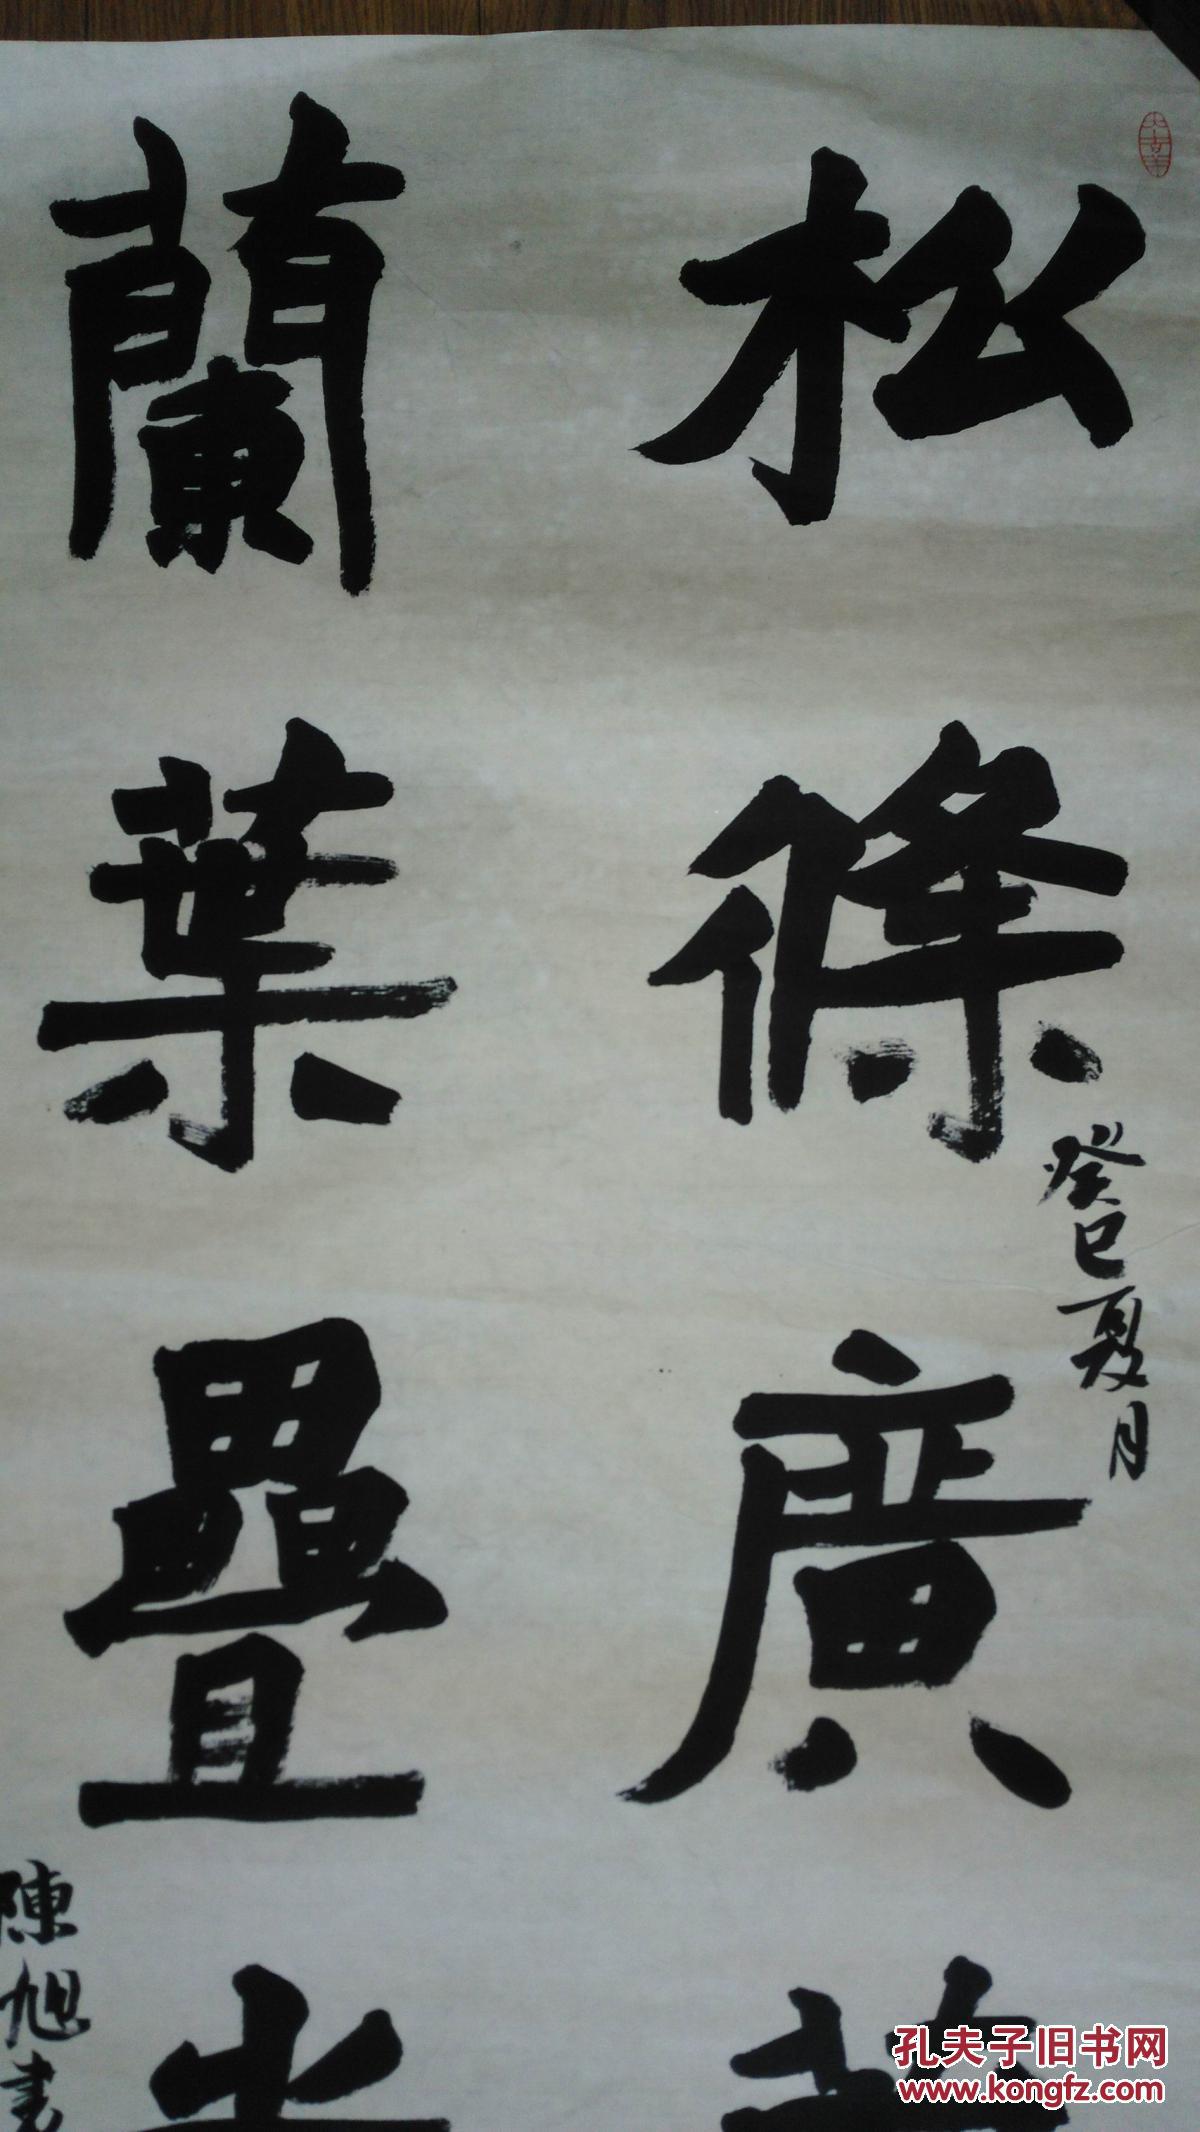 松條廣
癸巳夏月
蘭葉疊
陳旭書
孔夫子旧书网
www.kongfz.com